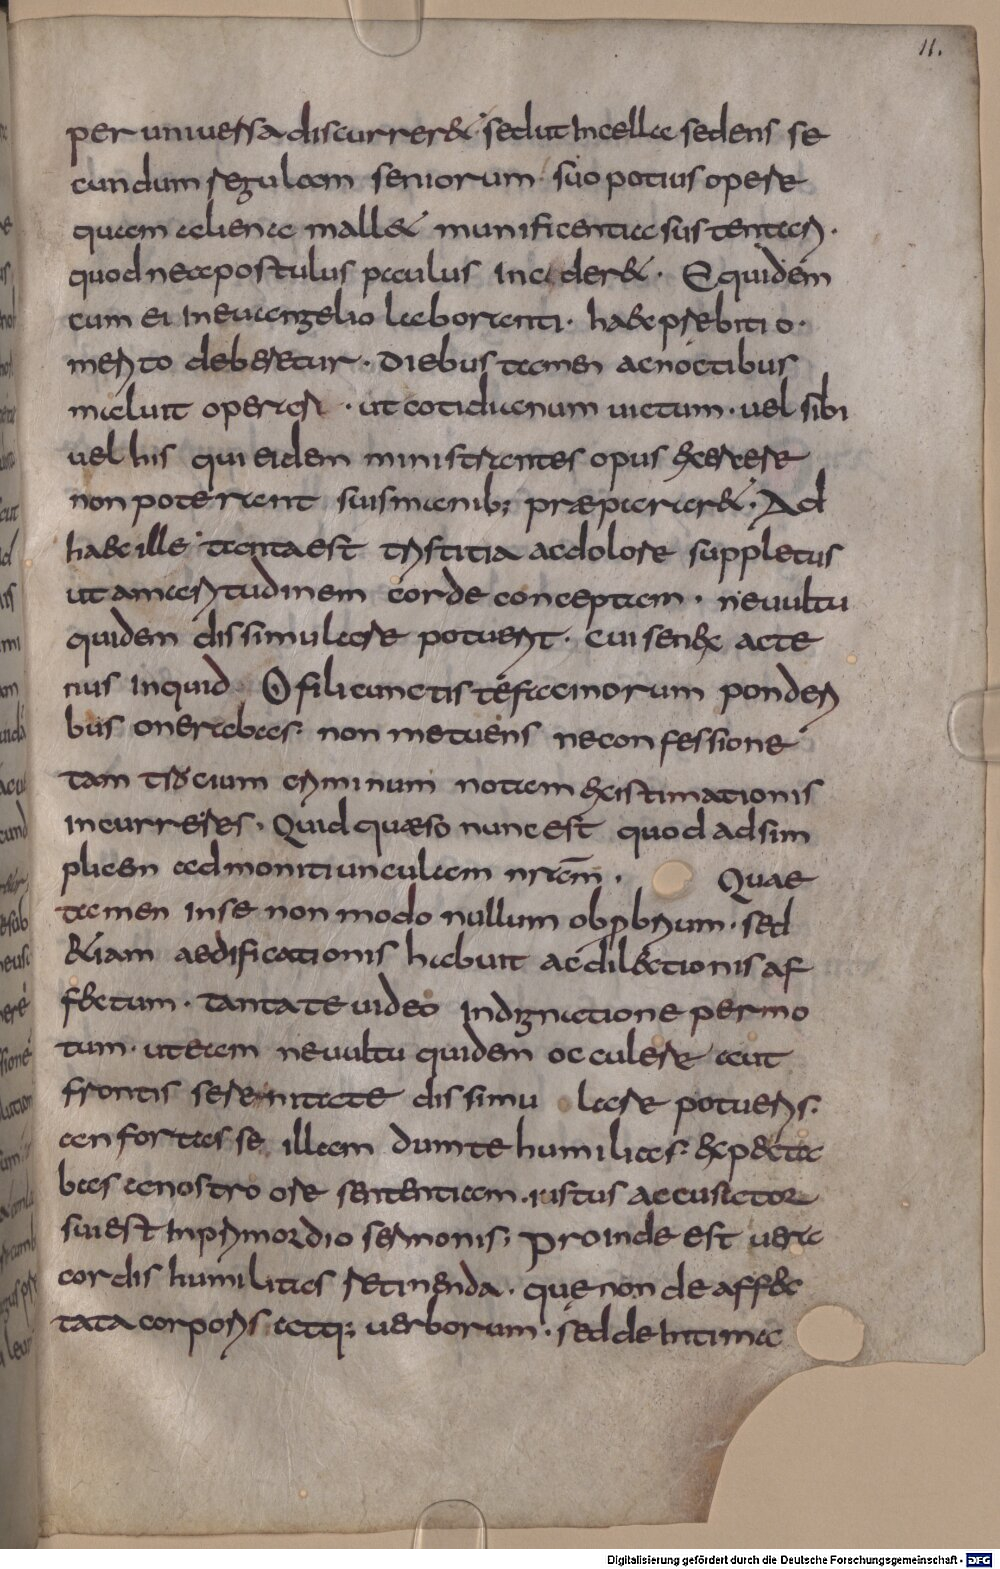 11.
per uniuersa discurrer&. sed ut in cella sedens se
cundum regulam seniorum suo potius opere
quam aliena mall& munificentia sustentari.
quod ne apostulus paulus incider&. Equidem
cum ei in euangelio laboranti. haec prebitio.
merito deberetur. diebus tamen ac noctibus
maluit operari. ut cotidianum uictum. uel sibi
uel his qui eidem ministrantes opus exercere
non poterant suis manib; præpararer&. Ad
haec ille tanta est tristitia ac dolore suppletus
ut amaritudinem corde conceptam. ne uultu
quidem dissimulare potuerit. cui senex acte
nus inquid O fili cunctis te facinorum ponderi
bus onerabas. non metuens ne confessione
tam trocium criminum notam existimationis
incurreres. Quid quæso nunc est quod ad sim
plicem admonitiunculam nram̄. Quae
tamen in se non modo nullum obprobrium. sed
&iam aedificationis habuit ac dilectionis af
fectum. tanta te uideo indignatione permo
tum. ut eam ne uultu quidem occulere aut
frontis serenitate dissimu lare potueris.
an fortasse illam dum te humilias. expecta
bas a nostro ore sententiam. iustus accusator
sui est in primordio sermonis; Proinde est uera
cordis humilitas retinenda. que non de affec
tata corporis atq; uerborum. sed de intima
Digitalisierung gefördert durch die Deutsche Forschungsgemeinschaft - DFG